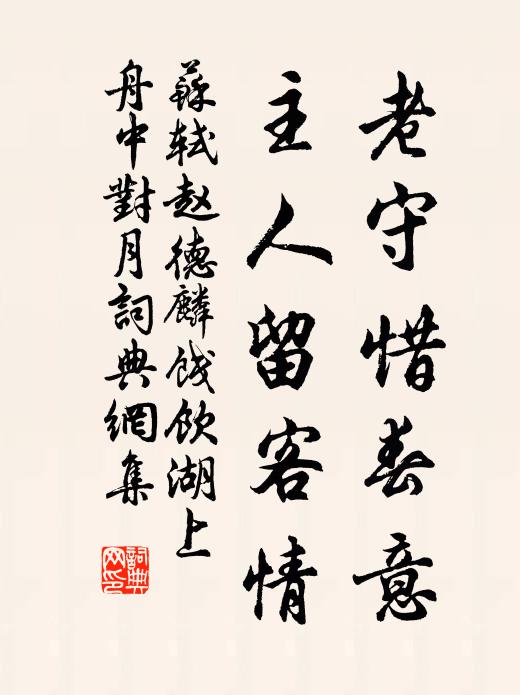 老守惜春意
主人留客情
蘇軾赵德麟餞飲湖上
舟中對月詞典網集
詞典
网印